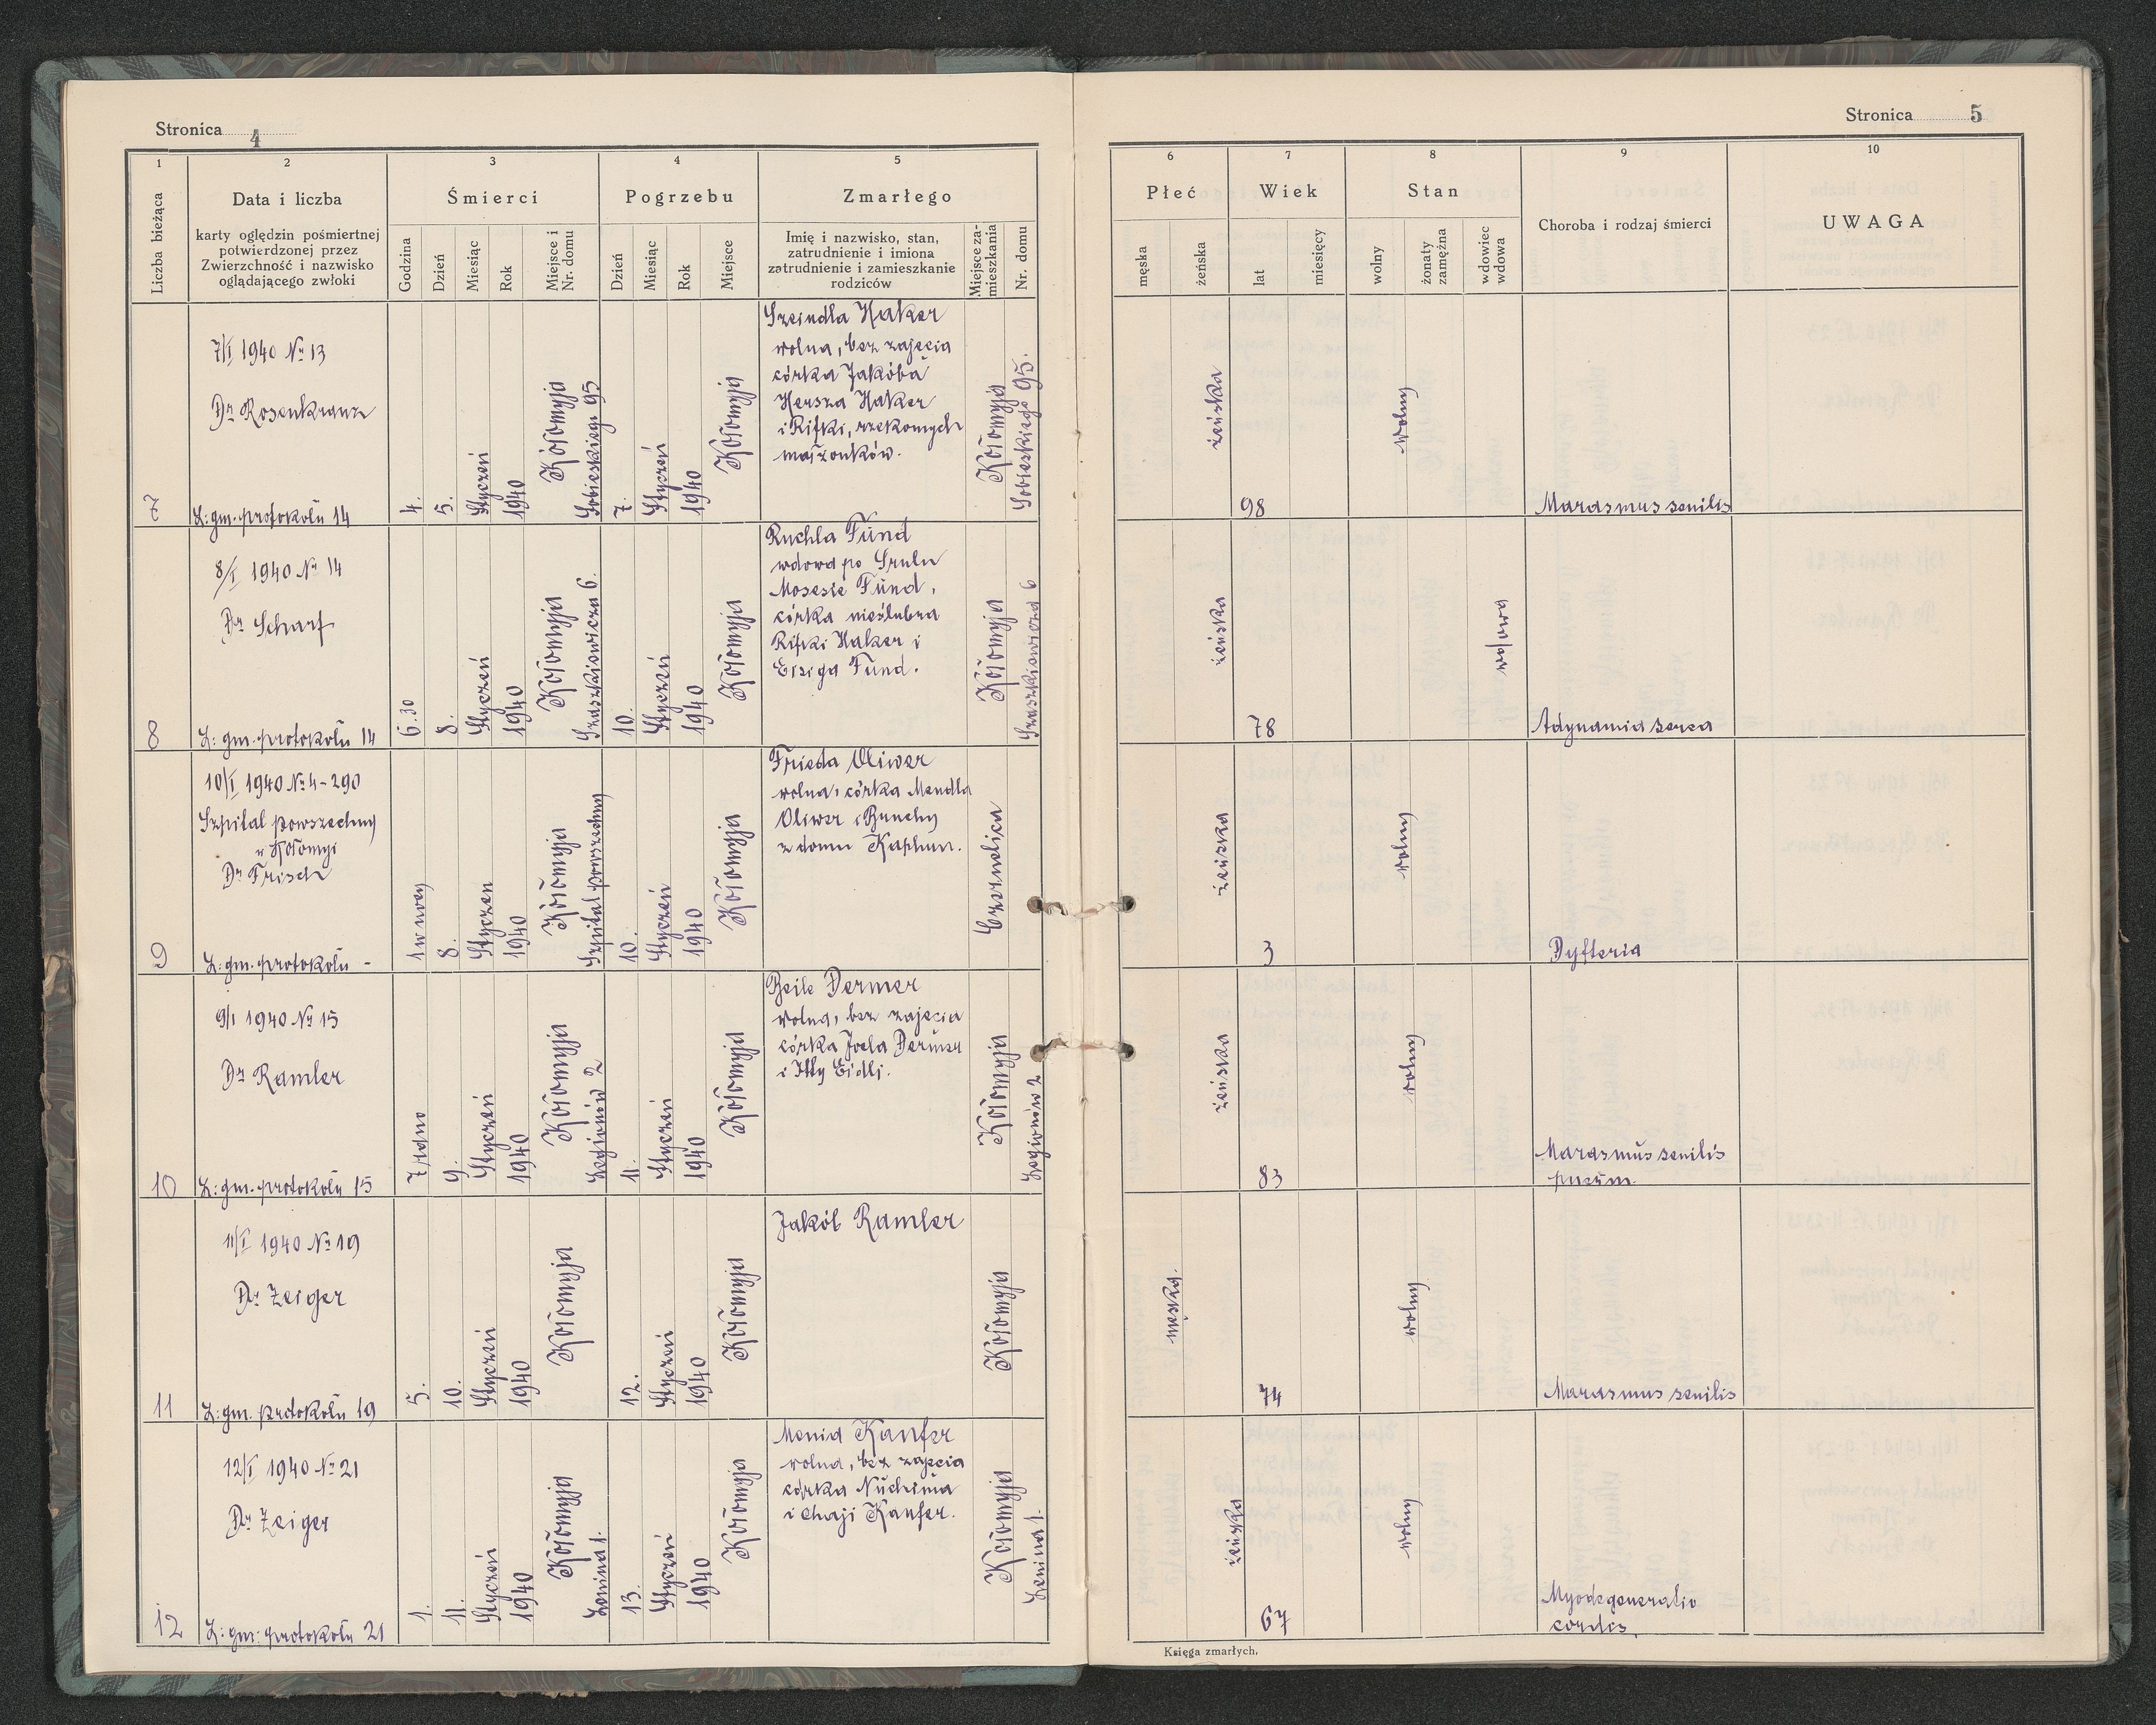 Stronica 4
1 2 3 4 5
Liczba bieżąca
Data i liczba
karty oględzin pośmiertnej
potwierdzonej przez
Zwierzchność i nazwisko
oglądającego zwłoki
Śmierci
Godzina
Dzień
Miesiąc
Rok
Miejsce i
Nr. domu
Pogrzebu
Dzień
Miesiąc
Rok
Miejsce
Zmarłego
Imię i nazwisko, stan,
zatrudnienie i imiona
zatrudnienie i zamieszkanie
rodziców
Miejsce za-
mieszkania
Nr. domu
7
7/I 1940 № 13
Dr Rosenkranz
L: gm. protokołu 14
4.
5.
Styczeń
1940
Kołomyja
Sobieskiego 95
7.
Styczeń
1940
Kołomyja
Szeindla Haker
wolna, bez zajęcia
córka Jakóba
Hersza Haker
i Rifki, rzekomych
małżonków.
Kołomyja
Sobieskiego 95.
8
8/I 1940 № 14
Dr Scharf
L: gm. protokołu 14
6.30
8.
Styczeń
1940
Kołomyja
Szaszkiewicza 6.
10.
Styczeń
1940
Kołomyja
Ruchla Fünd
wdowa po Srulu
Mosesie Fünd,
córka nieślubna
Rifki Haker i
Eisiga Fünd.
Kołomyja
Szaszkiewicza 6
9
10/I 1940 № 4-290
Szpital powszechny
w Kołomyi
Dr Frisch
L: gm. protokołu -
1 w nocy
8.
Styczeń
1940
Kołomyja
Szpital powszechny
10.
Styczeń
1940
Kołomyja
Frieda Oliwer
wolna, córka Mendla
Oliwer i Bunchy
z domu Kaphun.
Czernelica
10
9/I 1940 № 15
Dr Ramler
L: gm. protokołu 15
7 rano
9.
Styczeń
1940
Kołomyja
Legionów 2
11.
Styczeń
1940
Kołomyja
Beile Dermer
wolna, bez zajęcia
córka Joela Dermer
i Itty Eidli.
Kołomyja
Legionów 2
11
11/I 1940 № 19
Dr Zeiger
L: gm. protokołu 19
5.
10.
Styczeń
1940
Kołomyja
12.
Styczeń
1940
Kołomyja
Jakób Ramler
Kołomyja
12
12/I 1940 № 21
Dr Zeiger
L: gm: protokołu 21
1.
11.
Styczeń
1940
Kołomyja
Lenina 1.
13.
Styczeń
1940
Kołomyja
Menia Kanfer
wolna, bez zajęcia
córka Nuchima
i Chaji Kanfer.
Kołomyja
Lenina 1.
Stronica 5
6 7 8 9 10
Płeć
męska
żeńska
Wiek
lat
miesięcy
Stan
wolny
żonaty
zamężna
wdowiec
wdowa
Choroba i rodzaj śmierci
UWAGA
żeńska
98
wolny
Marasmus senilis
żeńska
78
wdowa
Adynamia serca
żeńska
3
wolny
Dyfteria
żeńska
83
wolny
Marasmus senilis
pneum.
męska.
74
wolny
Marasmus senilis
żeńska
67
wolny
Myodegeneratio
cordis.
Księga zmarłych.